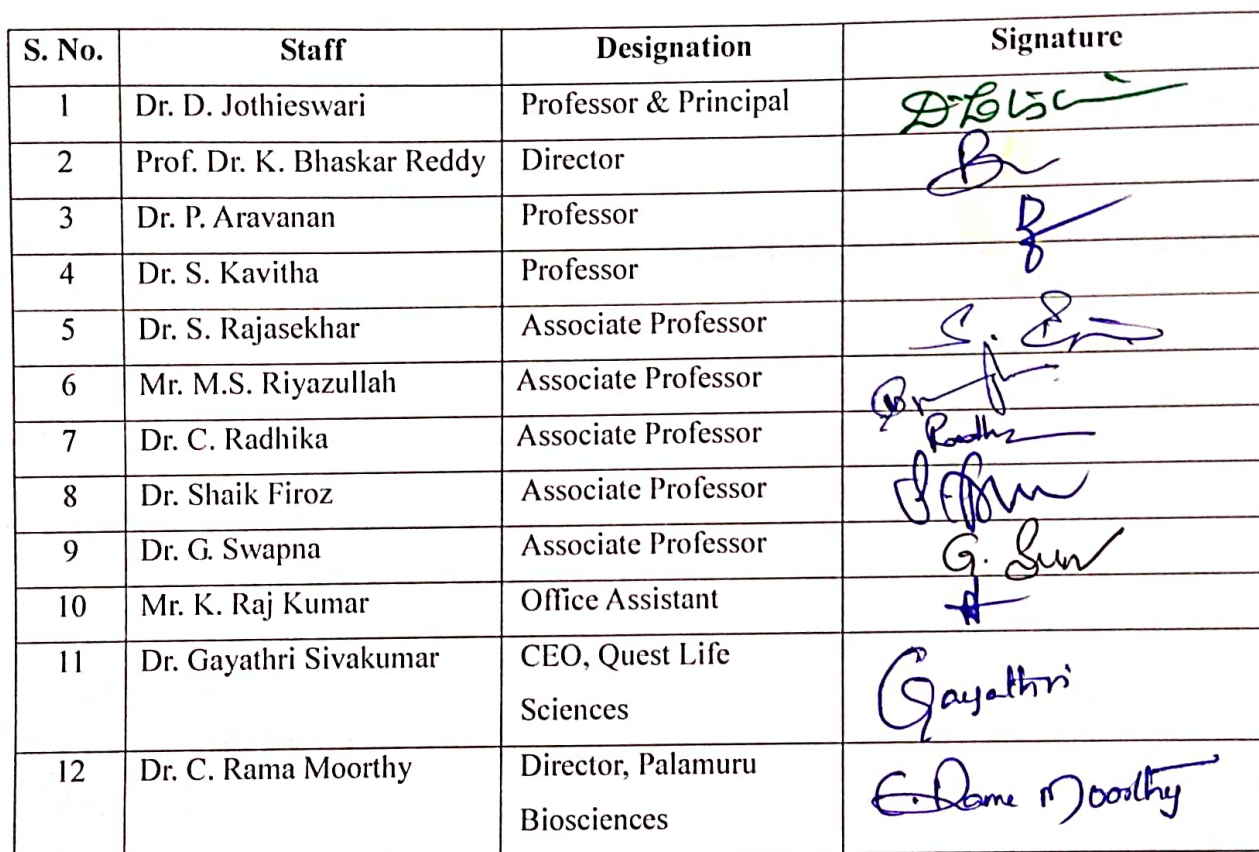 S. No. Staff Designation Signature
1 Dr. D. Jothieswari Professor & Principal
2 Prof. Dr. K. Bhaskar Reddy Director
3 Dr. P. Aravanan Professor
4 Dr. S. Kavitha Professor
5 Dr. S. Rajasekhar Associate Professor
6 Mr. M.S. Riyazullah Associate Professor
7 Dr. C. Radhika Associate Professor
8 Dr. Shaik Firoz Associate Professor
9 Dr. G. Swapna Associate Professor
10 Mr. K. Raj Kumar Office Assistant
11 Dr. Gayathri Sivakumar CEO, Quest Life
Sciences
Gayathri
12 Dr. C. Rama Moorthy Director, Palamuru
Biosciences
Moorthy